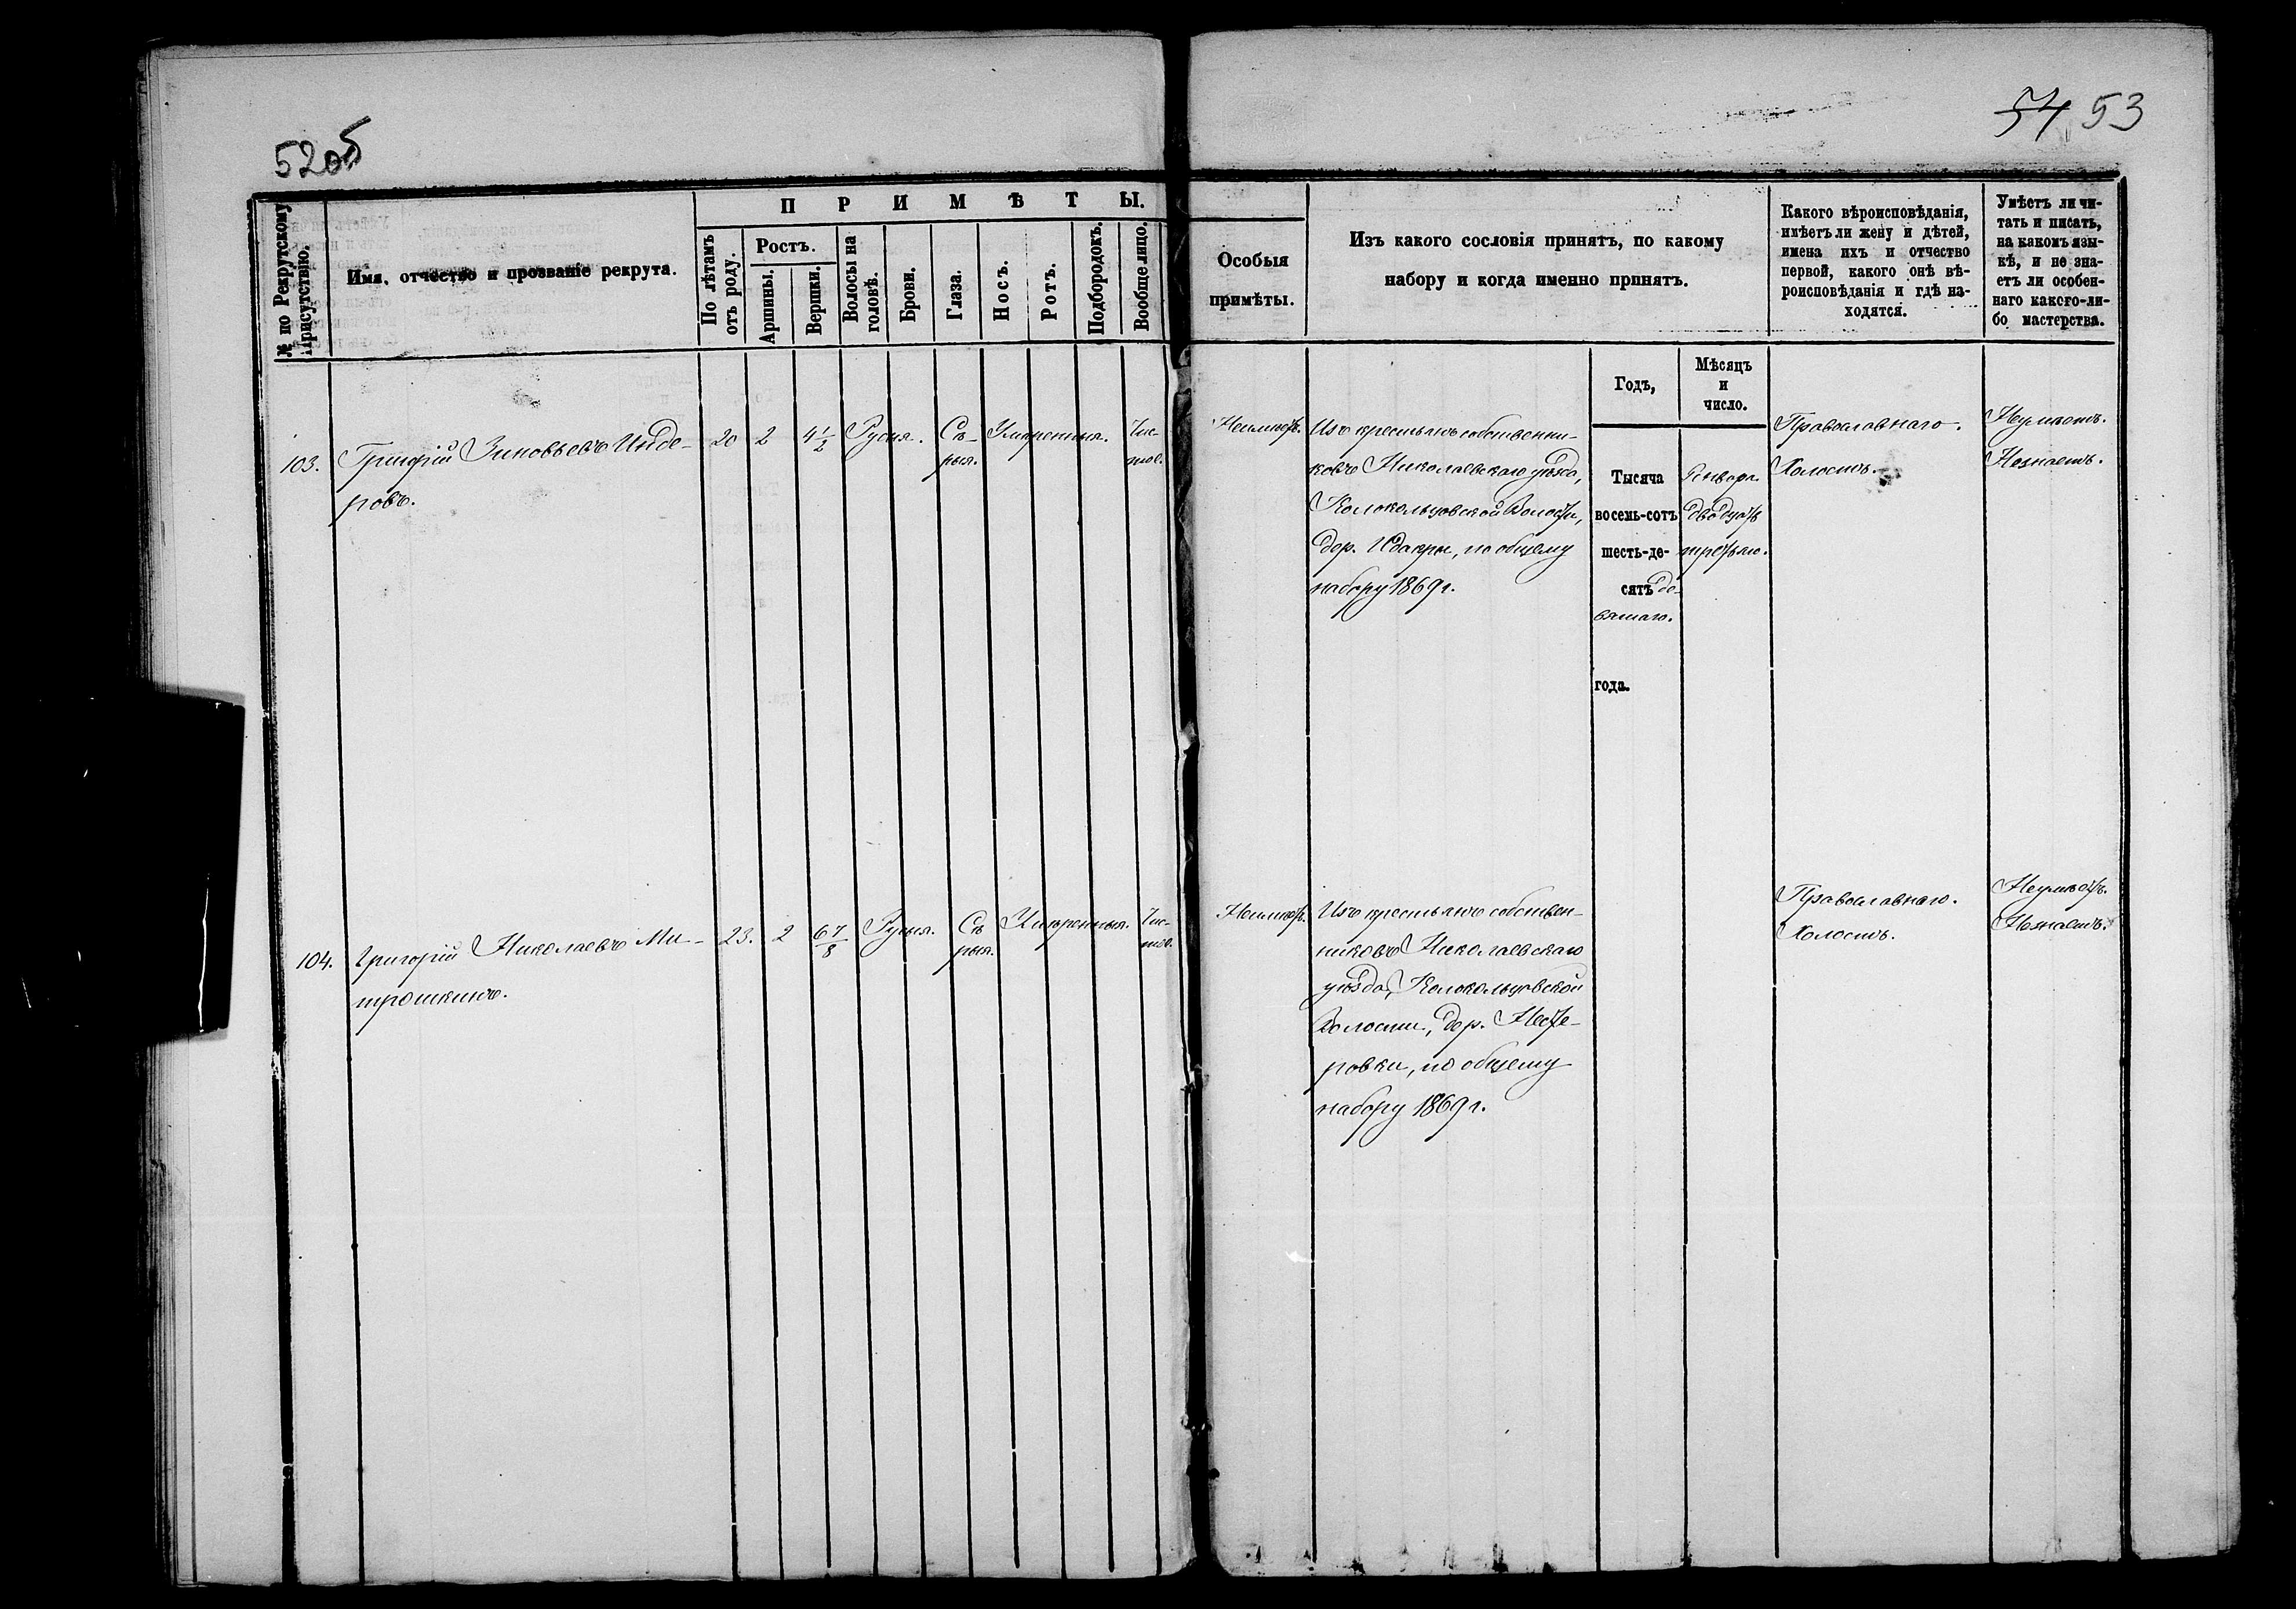 52об
54 53
№ по Рекрутскому Присутствію.
Имя, отчество и прозваніе рекрута.
ПРИМѢТЫ.
По лѣтамъ отъ роду.
Ростъ.
Аршины.
Вершки.
Волосы на головѣ.
Брови.
Глаза.
Носъ.
Ротъ.
Подбородокъ.
Вообще лицо.
Особыя
примѣты.
Изъ какого сословія принятъ, по какому
набору и когда именно принятъ.
Какого вѣроисповѣданія,
имѣетъ ли жену и дѣтей,
имена ихъ и отчество
первой, какого онѣ вѣ-
роисповѣданія и гдѣ на-
ходятся.
Умѣетъ ли чи-
тать и писать,
на какомъ язы-
кѣ, и не зна-
етъ ли особен-
наго какого-ли-
бо мастерства.
Годъ,
Мѣсяцъ
и
число.
103.
Григорій Зиновьевъ Инде-
ровъ.
20
2
4 1/2
Русыя.
Сѣ-
рыя.
Умѣренныя.
Чис-
тое.
Неимѣетъ.
Изъ крестьянъ собственни-
ковъ Николаевскаго уѣзда,
Колокольцовской Волости,
дер.
по общему
набору 1869 г.
Тысяча
восемь-сотъ
шесть-де-
сятъ де-
вятаго.
года.
Января
двадцать
третьяго.
Православнаго.
Холостъ.
Неумѣетъ.
Незнаетъ.
104.
Григорій Николаевъ Ми-
трошкинъ.
23.
2
6 7/8
Русыя.
Сѣ
рыя.
Умѣренныя.
Чис-
тое.
Неимѣетъ.
Изъ крестьянъ собствен-
никовъ Николаевскаго
уѣзда, Колокольцовской
Волости, дер. Несте-
ровки, по общему
набору 1869 г.
Православнаго.
Холостъ.
Неумѣетъ.
Незнаетъ.